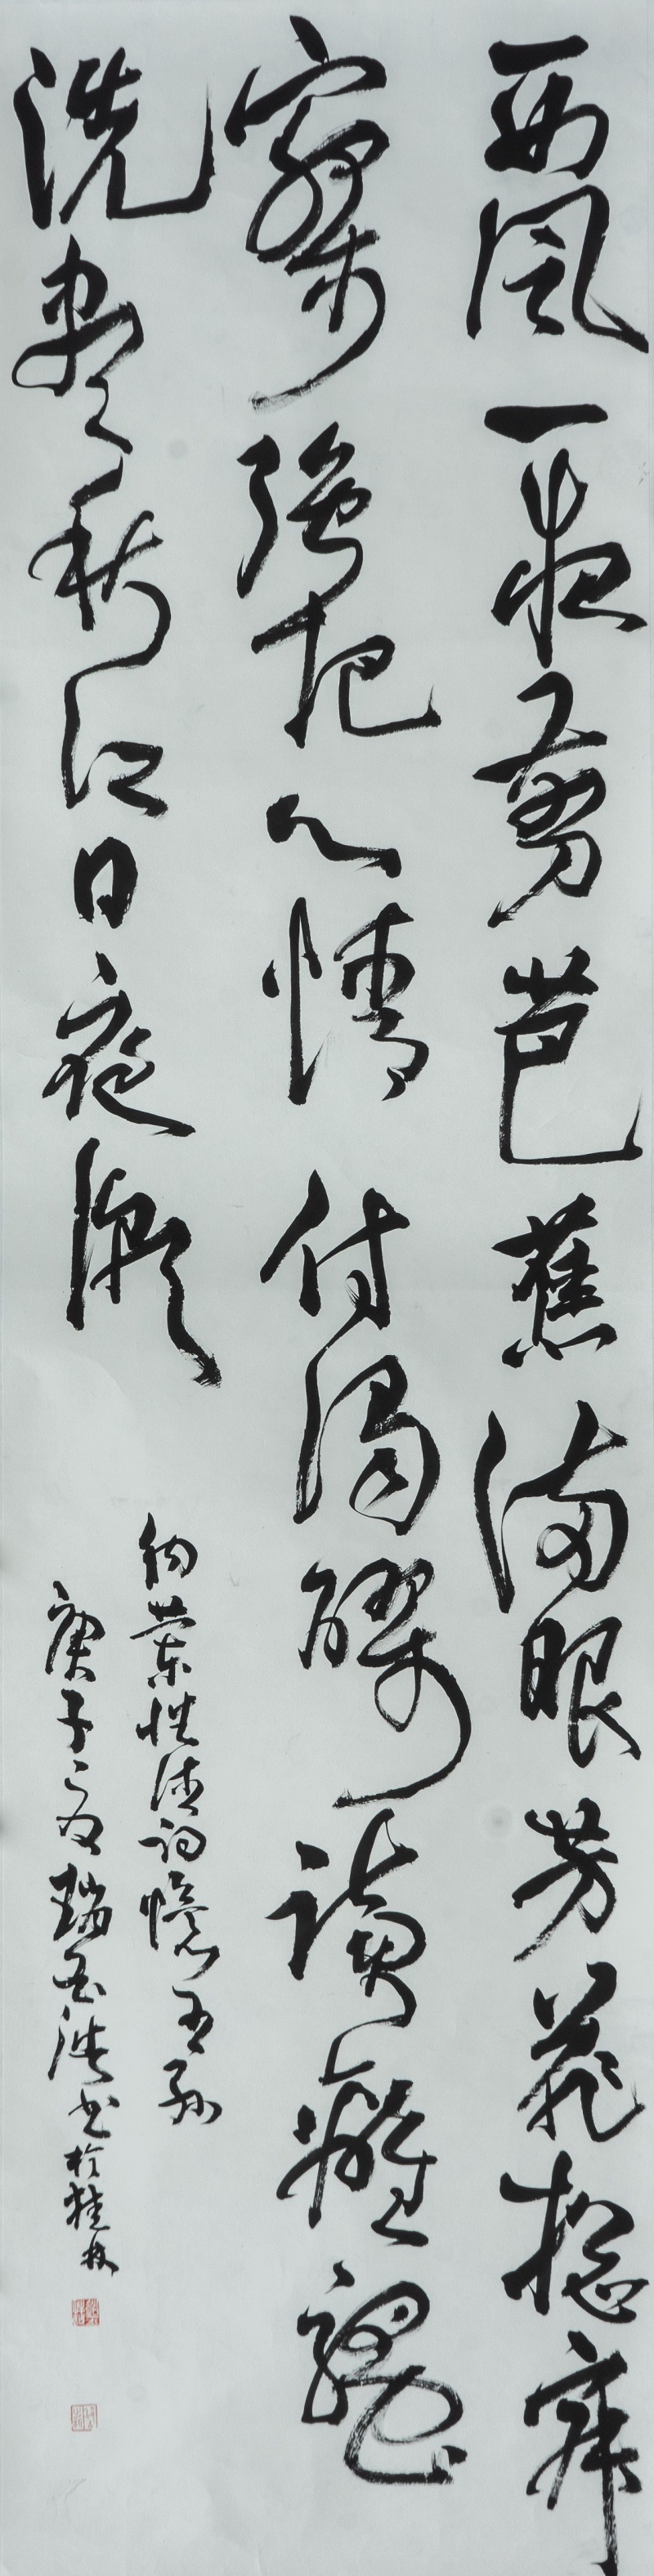 西風一夜翦芭蕉滿眼芳菲總寂
寥強把心情付濁醪讀離騷
洗盡秋江日夜潮
納蘭性德詞憶王孫
庚子之夏瑞书於桂林